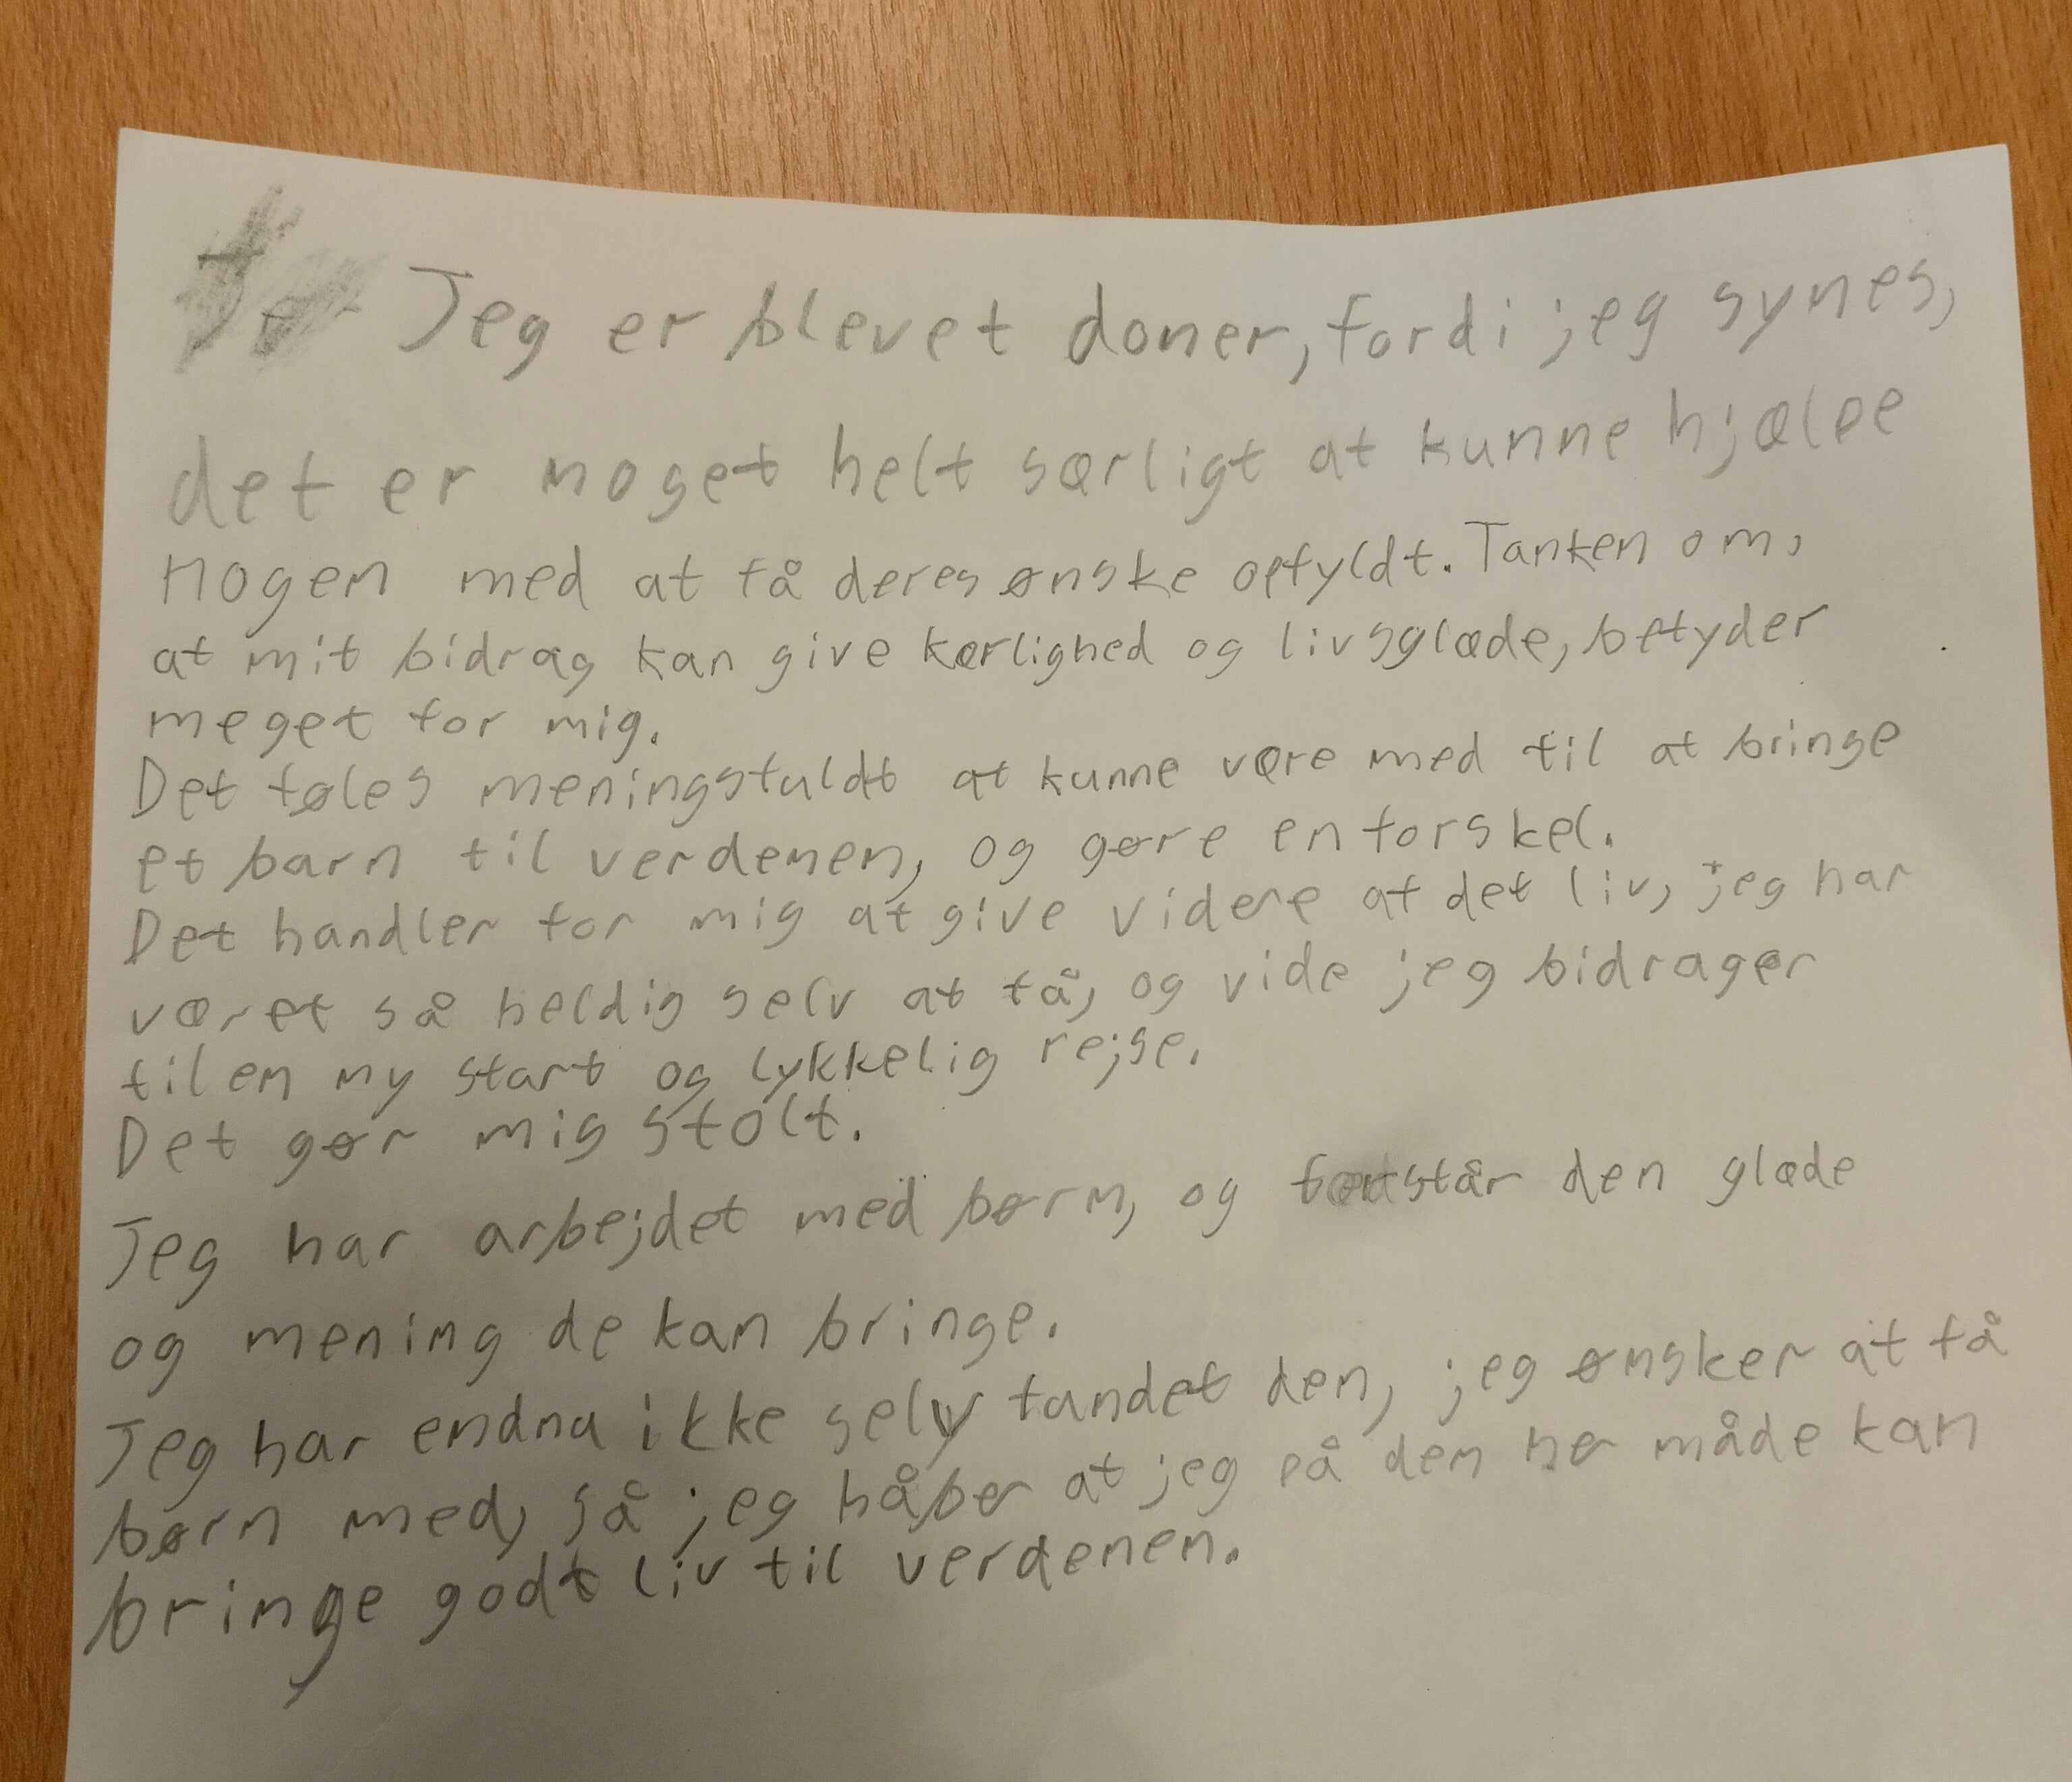 Jeg er blevet doner, fordi jeg synes,
det er noget helt særligt at kunne hjælpe
nogen med at få deres ønske opfyldt. Tanken om,
at mit bidrag kan give kærlighed og livsglæde, betyder
meget for mig.
Det føles meningsfuldt at kunne være med til at bringe
et barn til verdenen, og gøre en forskel.
Det handler for mig at give videre af det liv, jeg har
været så heldig selv at få, og vide jeg bidrager
til en ny start og lykkelig rejse.
Det gør mig stolt.
Jeg har arbejdet med børn, og forstår den glæde
og mening de kan bringe.
Jeg har endnu ikke selv fandet den, jeg ønsker at få
børn med, så jeg håber at jeg på den her måde kan
bringe godt liv til verdenen.